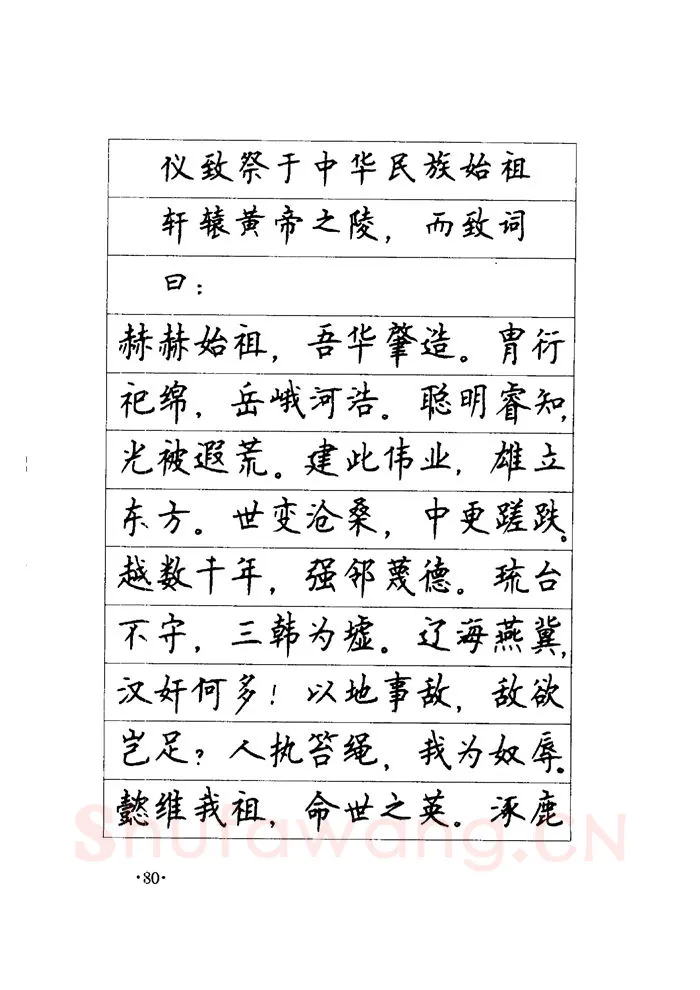 仪致祭于中华民族始祖
轩辕黄帝之陵，而致词
曰：
赫赫始祖，吾华肇造。胄衍
祀绵，岳峨河浩。聪明睿知，
光被遐荒。建此伟业，雄立
东方。世变沧桑，中更蹉跌。
越数千年，强邻蔑德。琉台
不守，三韩为墟。辽海燕冀，
汉奸何多！以地事敌，敌欲
岂足？人执笞绳，我为奴辱。
懿维我祖，命世之英。涿鹿
Shufawang.CN
·80·